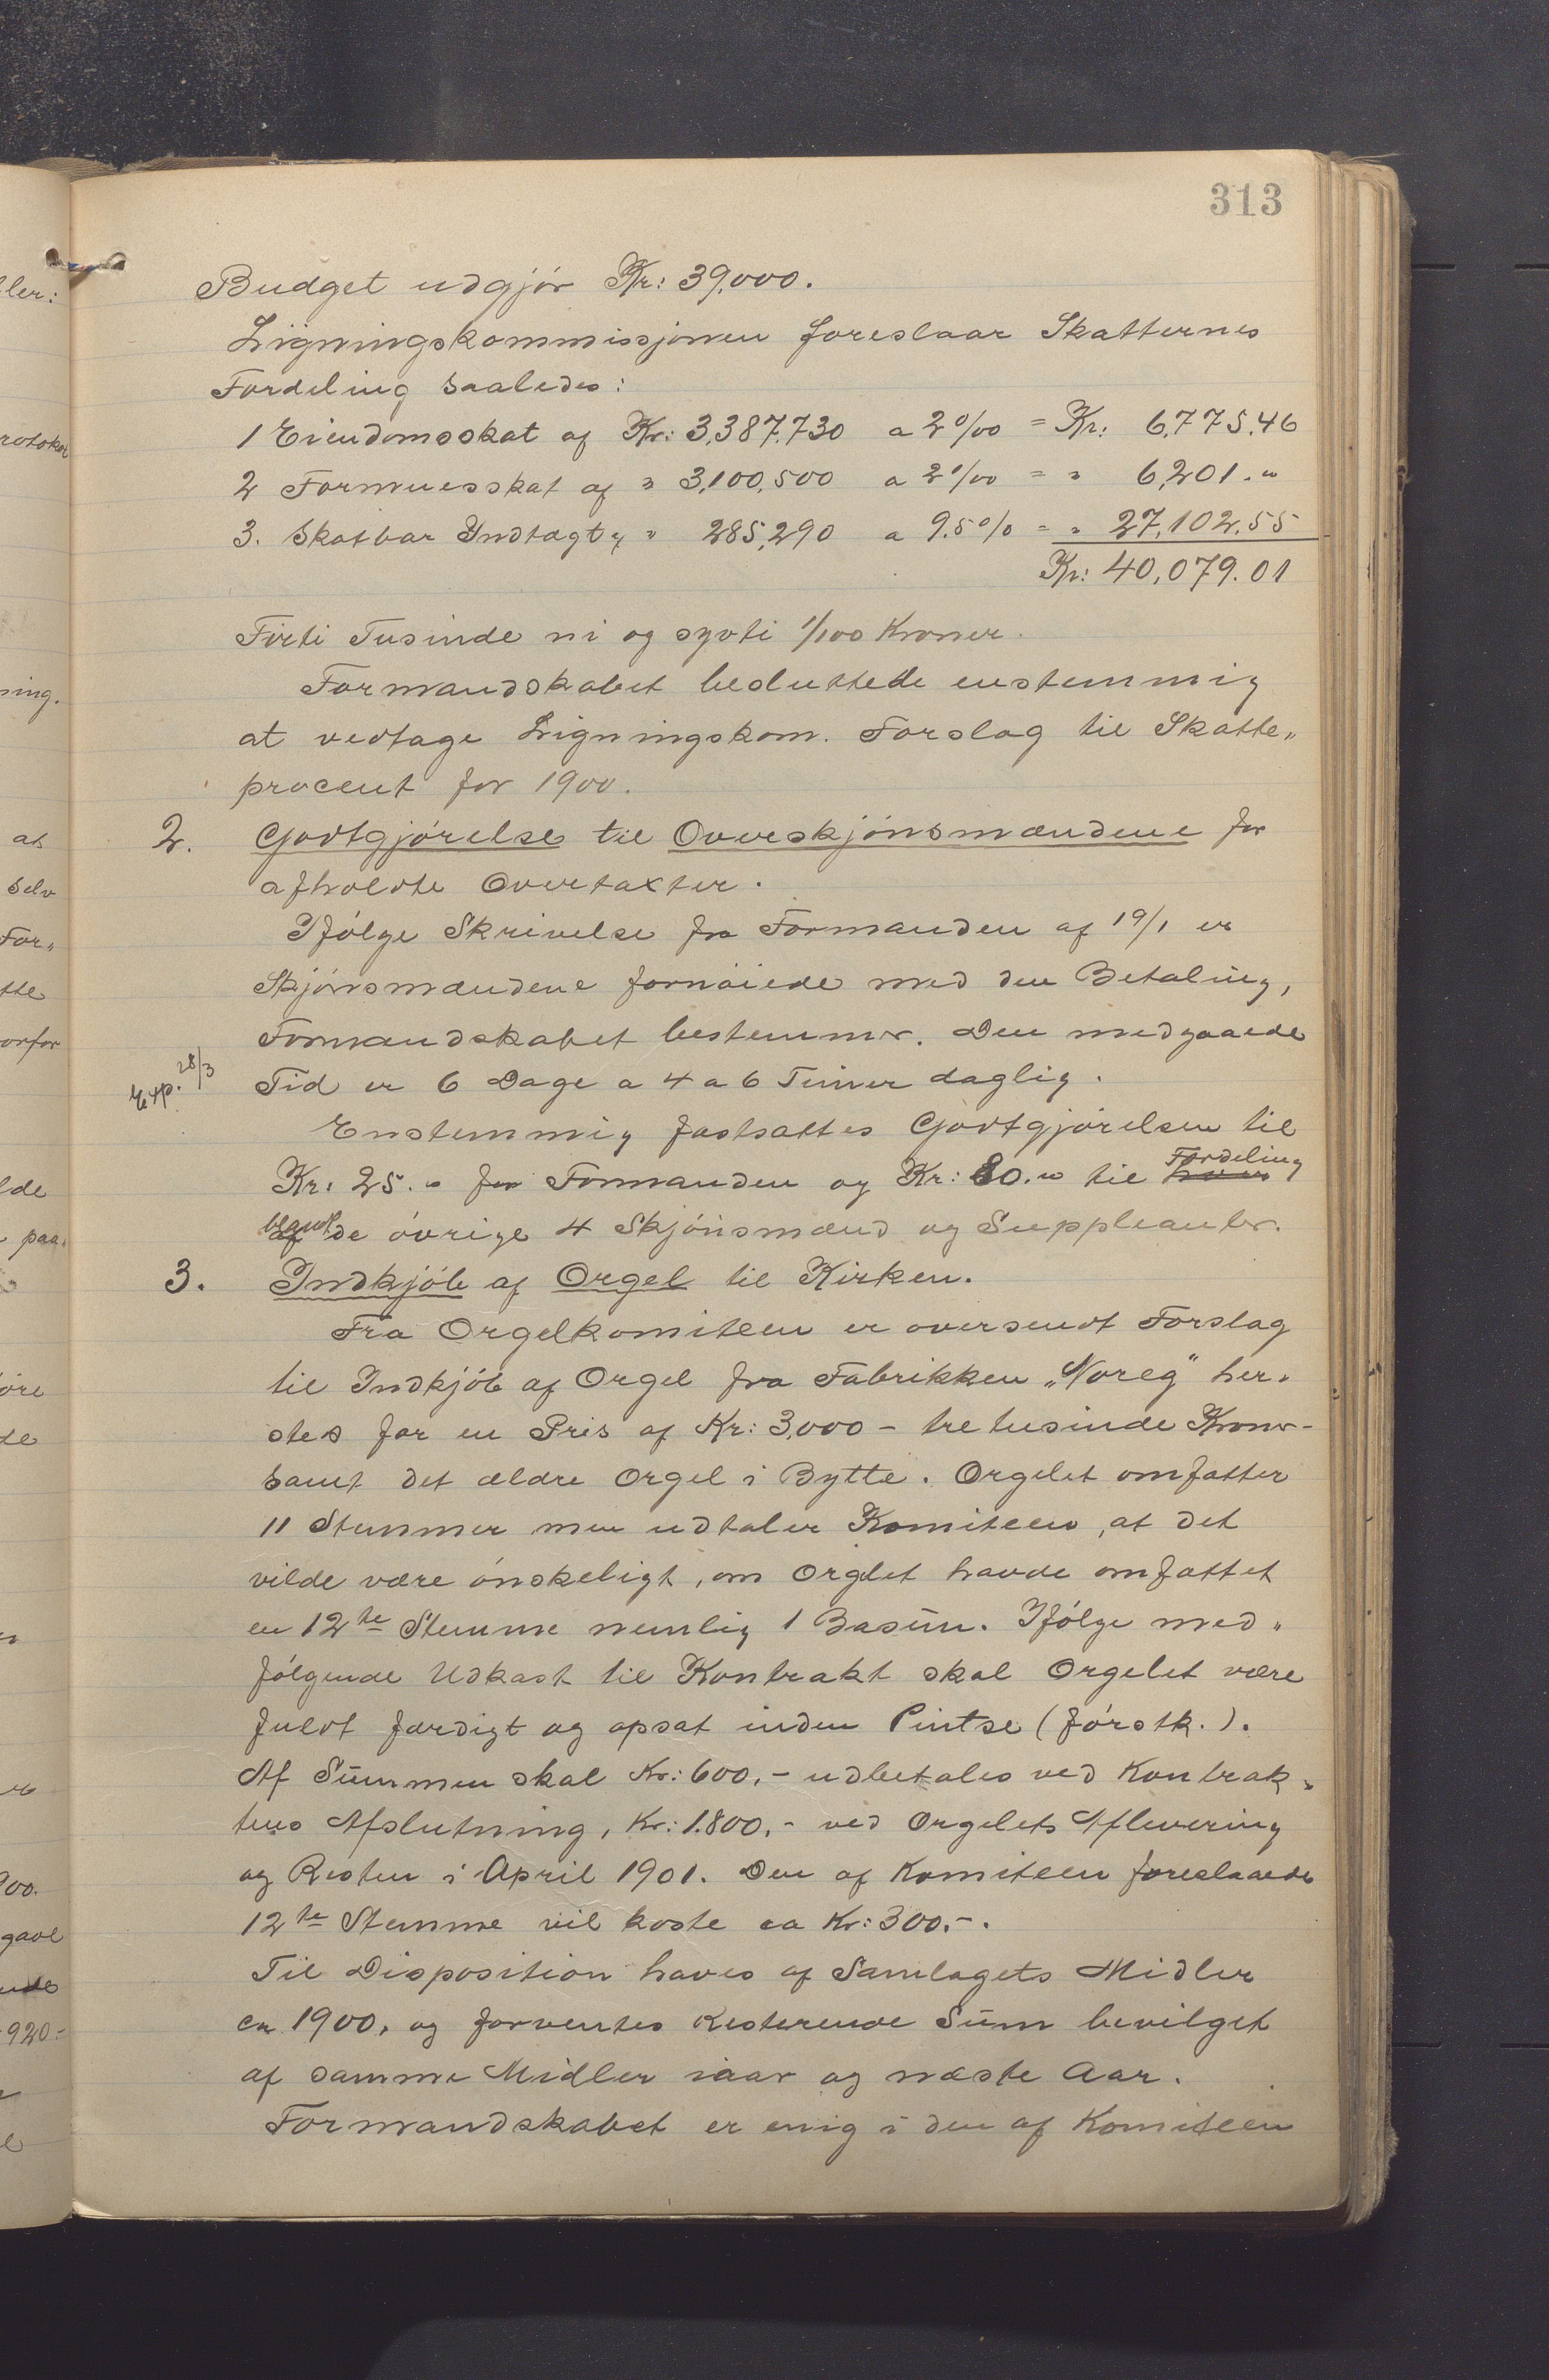 313
Budget udgjör Kr: 39,000.
Ligningskommissjonen foreslaar Skatternes
Fordeling saaledes:
1 Eiendomsskat af Kr: 3,387,730 a 2 0/00 = Kr: 6,775.46
2 Formuesskat af " 3,100,500 a 2 0/00 = " 6,201. "
3. Skatbar Indtægt af " 285,290 a 9.5 % = " 27,102.55
Kr: 40,079.01
Firti Tusinde ni og syvti 1/100 Kroner.
Formandskabet besluttede enstemmig
at vedtage Ligningskom. Forslag til Skatte„
procent for 1900.
2. Godtgjörelse til Overskjönsmændene for
afholdte Overtaxter.
Ifölge Skrivelse fra Formanden af 19/1 er
Skjönsmændene fornöiede med den Betaling,
Formandskabet bestemmer. Den medgaaede
Exp. 28/3
Tid er 6 Dage a 4 a 6 Timer daglig.
Enstemmig fastsattes Godtgjörelsen til
Kr: 25. " for Formanden og Kr: 80. " til Fordeling
blandt de övrige 4 Skjönsmænd og Suppleanter.
3. Indkjöb af Orgel til Kirken.
Fra Orgelkomiteen er oversendt Forslag
til Indkjöb af Orgel fra Fabrikken „Noreg" her„
steds for en Pris af Kr: 3,000 – tre tusinde Kroner –
samt det ældre Orgel i Bytte. Orgelet omfatter
11 Stemmer men udtaler Komiteen, at det
vilde være önskeligt, om Orglet havde omfattet
en 12te Stemme nemlig 1 Basun. Ifölge med„
fölgende Udkast til Kontrakt skal Orgelet være
fuldt færdigt og opsat inden Pintse (förstk.).
Af Summen skal Kr: 600,- udbetales ved Kontrak„
tens Afslutning, Kr: 1.800,- ved Orgelets Aflevering
og Resten i April 1901. Den af Komiteen foreslaaede
12te Stemme vil koste ca Kr: 300,-.
Til Disposition haves af Samlagets Midler
ca 1900, og forventes resterende Sum bevilget
af samme Midler iaar og næste Aar.
Formandskabet er enig i den af Komiteen